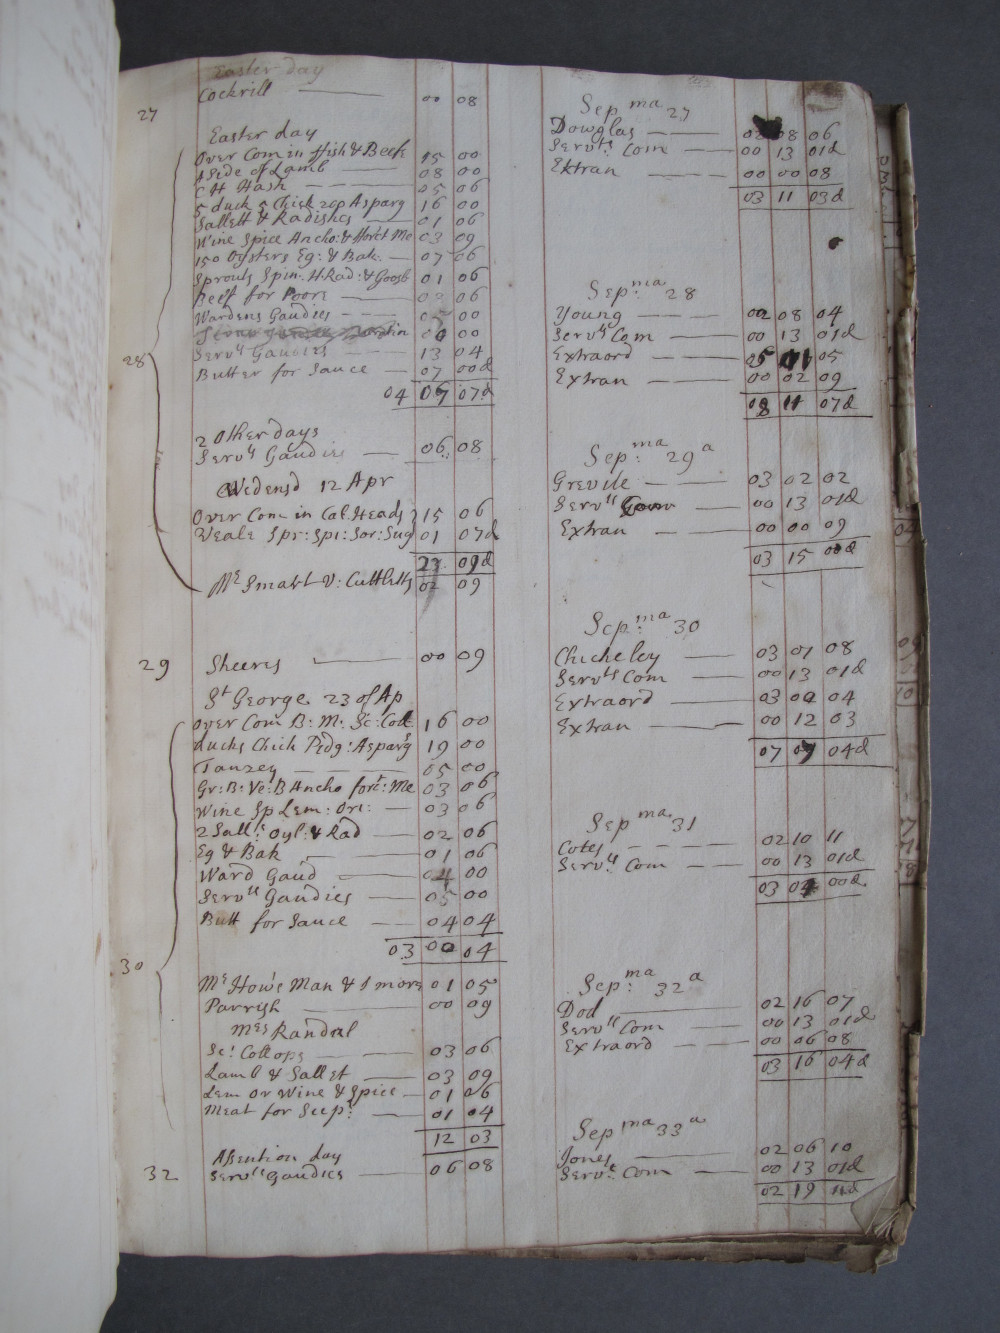 Easter day
27 Cockrill 00 08
Easter day
Over Com in ffish & Beefe 15 00
A Side of Lamb 08 00
C H Hash 05 06
5 duck 5 Chick 200 Asparg 16 00
Sallett & Radishes 01 06
Wine Spice Ancho: & fforct Me 03 09
150 Oysters Eg: & Bak. 07 06
Sprouts Spin: H. Rad: & Goosb 01 06
Beeff for Poore 02 06
Wardens Gaudies 00
00
28 Servts Gaudies 13 04
Butter for Sauce 07 00d
04 07 07d
2 Other days
Servts Gaudies 06 08
Wedensd 12 Apr
Over Com in Cal. Heads 15 06
Veale Spr: Spi: Sor: Sug 01 07d
23 09d
Mr Smart V: Cuttletts 02 09
29 Sheeres 00 09
St George 23 of Ap
Over Com B: M: Sc: Coll 16 00
ducks Chick Pidg: Asparg 19 00
Tanzey 05 00
Gr: B: Ve: B Ancho forct: Me 03 06
Wine Sp Lem: Ori: 03 06
2 Sallts Oyl: & Rad 02 06
Eg & Bak 01 06
Ward Gaud 04 00
Servts Gaudies 05 00
Butt for Sauce 04 04
03 00 04
30
Mr How's Man & 1 more 01 05
Parrish 00 09
Mrs Randal
Sc: Collops 03 06
Lamb & Sallet 03 09
Lem or Wine & Spice 01 06
Meat for Supr: 01 04
12 03
Asention day
32 Servts Gaudies 06 08
Sepma 27
Dowglas 02 08 06
Servts Com 00 13 01d
Extran 00 00 08
03 11 03d
Sep:ma 28
Young 02 08 04
Servts Com 00 13 01d
Extraord 05 05
Extran 00 02 09
08 11 07d
Sep:ma 29a
Grevile 03 02 02
Servts Com 00 13 01d
Extran 00 00 09
03 15 00d
Sep:ma 30
Chicheley 03 01 08
Servts Com 00 13 01d
Extraord 03 00 04
Extran 00 12 03
07 07 04d
Sepma 31
Cotes 02 10 11
Servts Com 00 13 01d
03 04 00d
Sep:ma 32a
Dod 02 16 07
Servts Com 00 13 01d
Extraord 00 06 08
03 16 04d
Sepma 33a
Jones 02 06 10
Servts Com 00 13 01d
02 19 11d